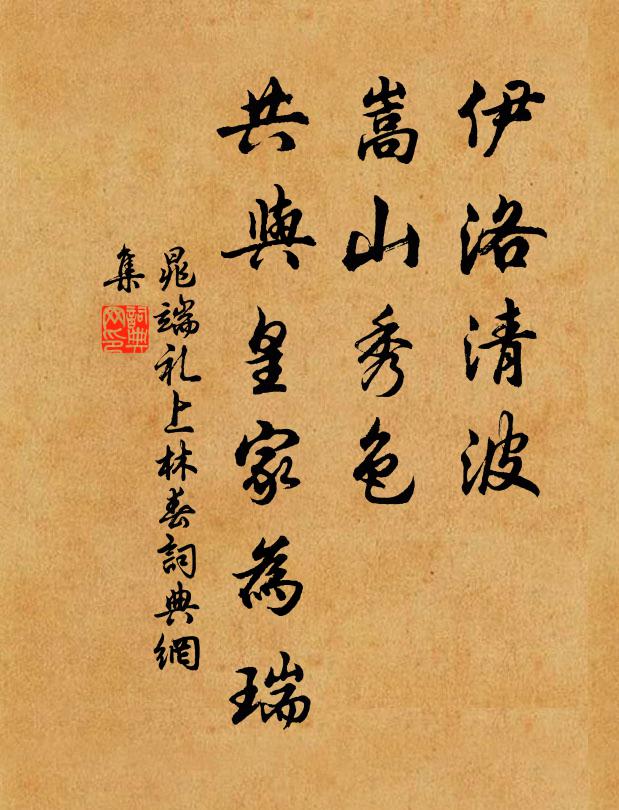 伊洛清波
嵩山秀色
共與皇家為瑞
晁端礼上林春詞典網
集
詞典
网印